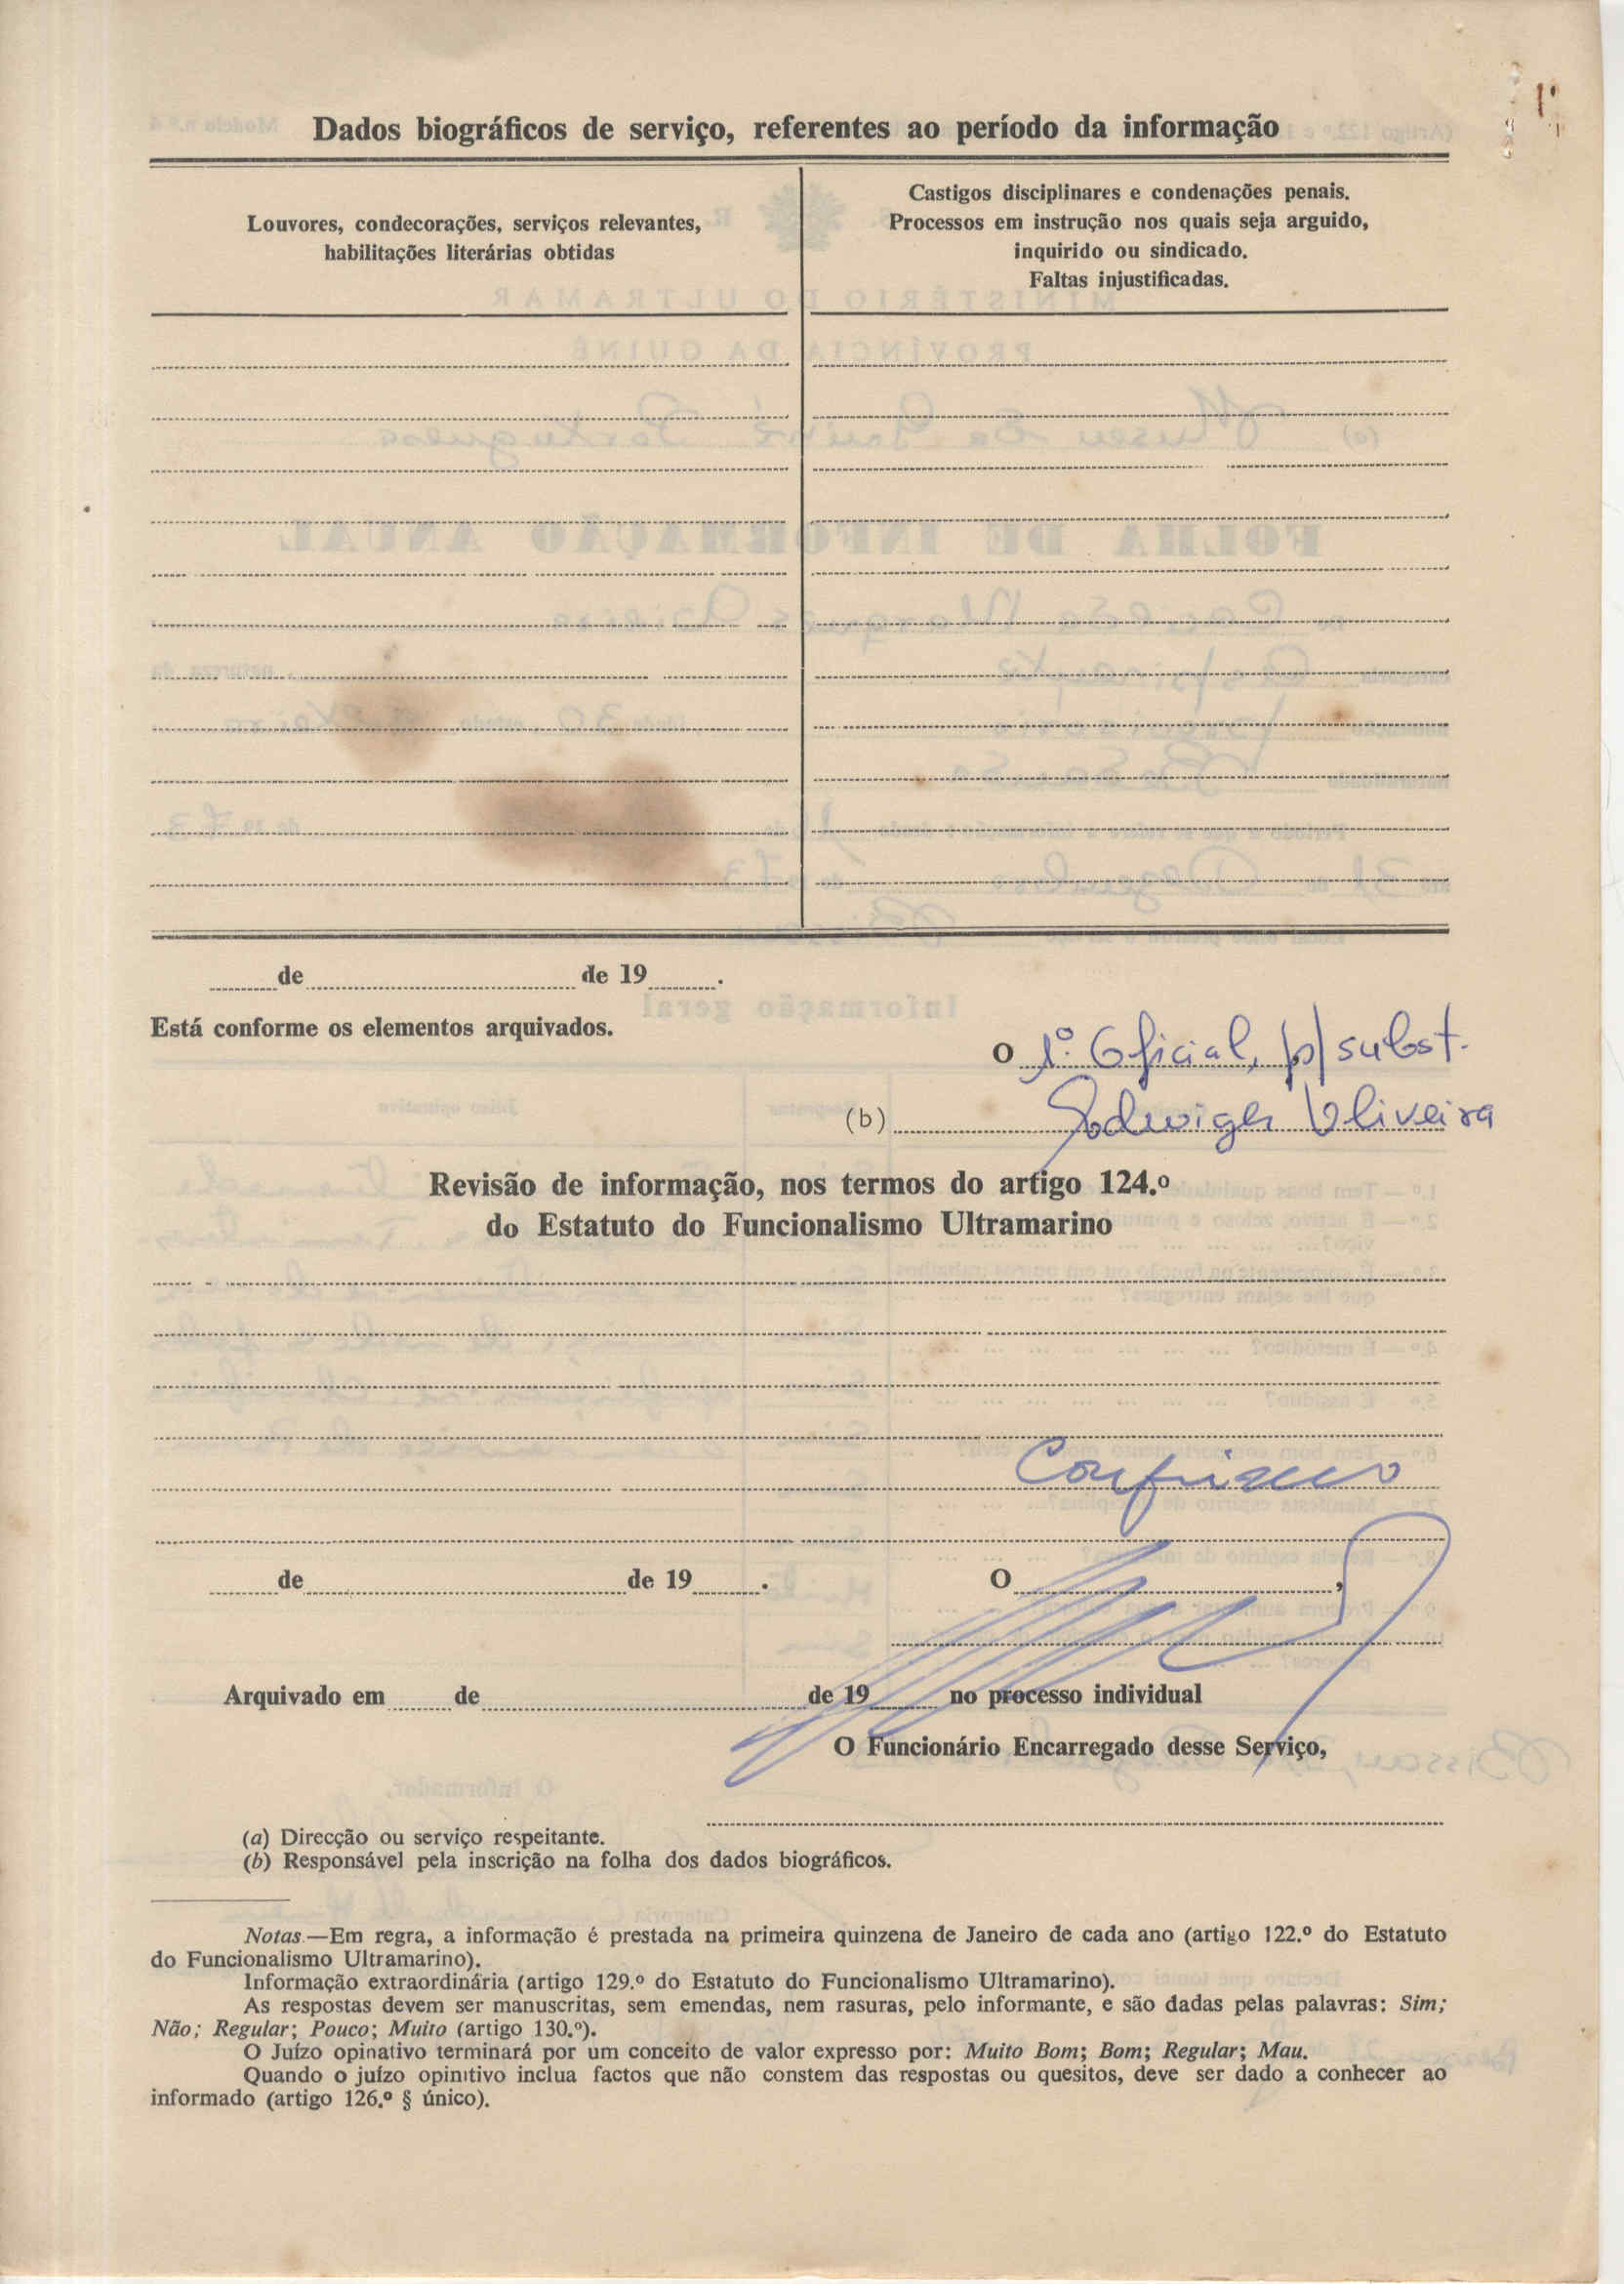 Dados biográficos de serviço, referentes ao período da informação
Louvores, condecorações, serviços relevantes,
habilitações literárias obtidas
Castigos disciplinares e condenações penais.
Processos em instrução nos quais seja arguido,
inquirido ou sindicado.
Faltas injustificadas.
de de 19 .
Está conforme os elementos arquivados.
O 1.º Oficial, p/ subst.
(b) Oliveira
Revisão de informação, nos termos do artigo 124.º
do Estatuto do Funcionalismo Ultramarino
Confirmo
de de 19 . O ,
Arquivado em de de 19 no processo individual
O Funcionário Encarregado desse Serviço,
(a) Direcção ou serviço respeitante.
(b) Responsável pela inscrição na folha dos dados biográficos.
Notas.—Em regra, a informação é prestada na primeira quinzena de Janeiro de cada ano (artigo 122.º do Estatuto
do Funcionalismo Ultramarino).
Informação extraordinária (artigo 129.º do Estatuto do Funcionalismo Ultramarino).
As respostas devem ser manuscritas, sem emendas, nem rasuras, pelo informante, e são dadas pelas palavras: Sim;
Não; Regular; Pouco; Muito (artigo 130.º).
O Juízo opinativo terminará por um conceito de valor expresso por: Muito Bom; Bom; Regular; Mau.
Quando o juízo opinitivo inclua factos que não constem das respostas ou quesitos, deve ser dado a conhecer ao
informado (artigo 126.º § único).